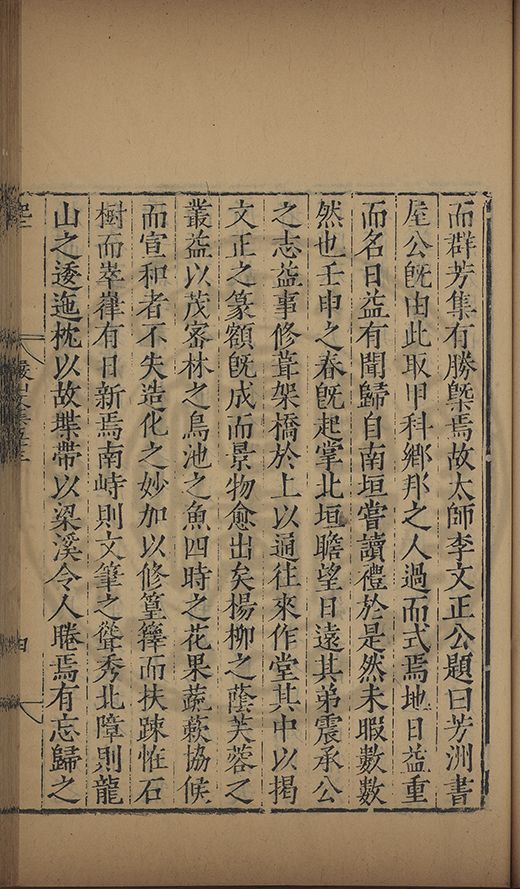 而群芳集有勝槩焉故太師李文正公題曰芳洲書
屋公旣由此取甲科鄉邦之人過而式焉地日益重
而名日益有聞歸自南垣嘗讀禮於是然未暇數數
然也壬申之春旣起掌北垣瞻望日遠其弟震承公
之志益事修葺架橋於上以通往來作堂其中以揭
文正之篆額旣成而景物愈出矣楊柳之蔭芙蓉之
叢益以茂密林之鳥池之魚四時之花果蔬蔌協候
而宣和者不失造化之妙加以修篁籜而扶踈恠石
樹而萃嵂有日新焉南峙則文筆之聳秀北障則龍
山之逶迤枕以故堞帶以梁溪令人睠焉有忘歸之
四